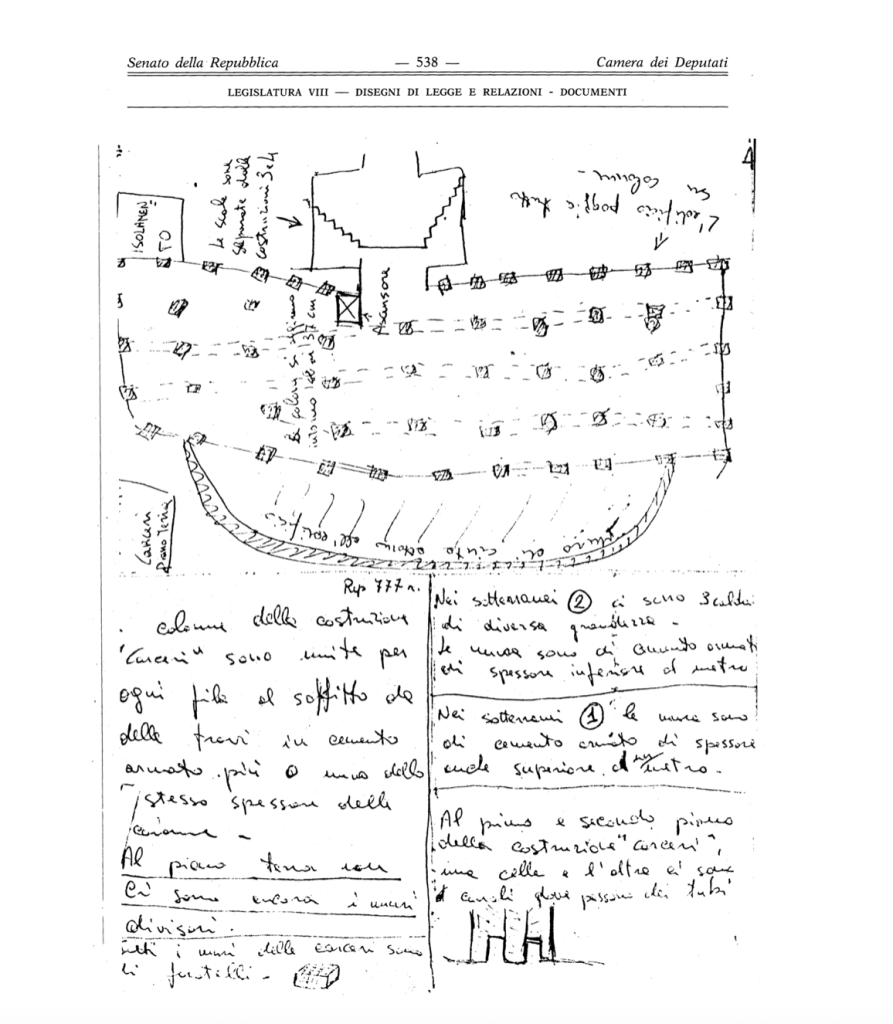 Senato della Repubblica — 538 — Camera dei Deputati
LEGISLATURA VIII — DISEGNI DI LEGGE E RELAZIONI - DOCUMENTI
4
ISOLAMEN
TO
Le scale sono
separate dalle
costruzioni 3 e 4
L'edificio poggia tutto
su colonne -
Ascensore
intorno
37 cm
muro di cinta attorno all'edificio
Carceri
piano Terra
Rep 777 n.
colonne della costruzione
"Carceri" sono unite per
ogni fila al soffitto da
delle travi in cemento
armato più o meno dello
stesso spessore delle
colonne -
Al piano terra non
Ci sono ancora i muri
divisori.
tutti i muri delle carceri sono
di foratelli -
Nei sotterranei 2 ci sono 3 caldaie
di diversa grandezza -
Le mura sono di cemento armato
di spessore inferiore al metro
Nei sotterranei 1 le mura sono
di cemento armato di spessore
anche superiore al metro -
Al primo e secondo piano
della costruzione "Carceri",
una cella e l'altra ci sono
canali dove passano dei tubi